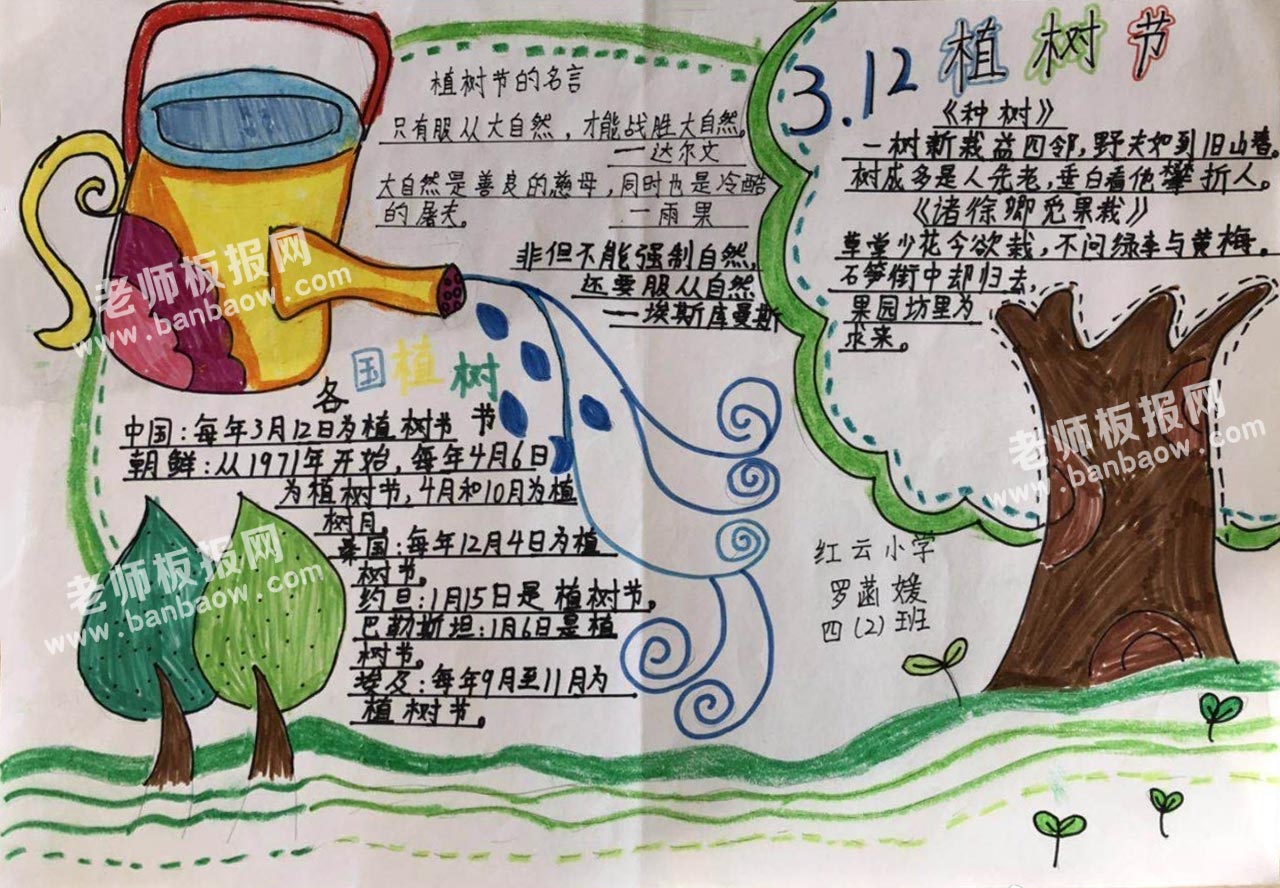 植树节的名言
只有服从大自然，才能战胜大自然。
—达尔文
大自然是善良的慈母，同时也是冷酷
的屠夫。 —雨果
非但不能强制自然，
还要服从自然
—埃斯库曼斯
3.12植树节
《种树》
一树新栽益四邻，野夫如到旧山春。
树成多是人先老，垂白看他攀折人。
《诣徐卿觅果栽》
草堂少花今欲栽，不问绿李与黄梅。
石笋街中却归去，
果园坊里为
求来。
各国植树节
中国：每年3月12日为植树节
朝鲜：从1971年开始，每年4月6日
为植树节，4月和10月为植
树月。
泰国：每年12月4日为植
树节。
约旦：1月15日是植树节。
巴勒斯坦：1月6日是植
树节。
埃及：每年9月至11月为
植树节。
红云小学
罗菡媛
四（2）班
老师板报网
www.banbaow.com
老师板报网
www.banbaow.com
老师板报网
www.banbaow.com